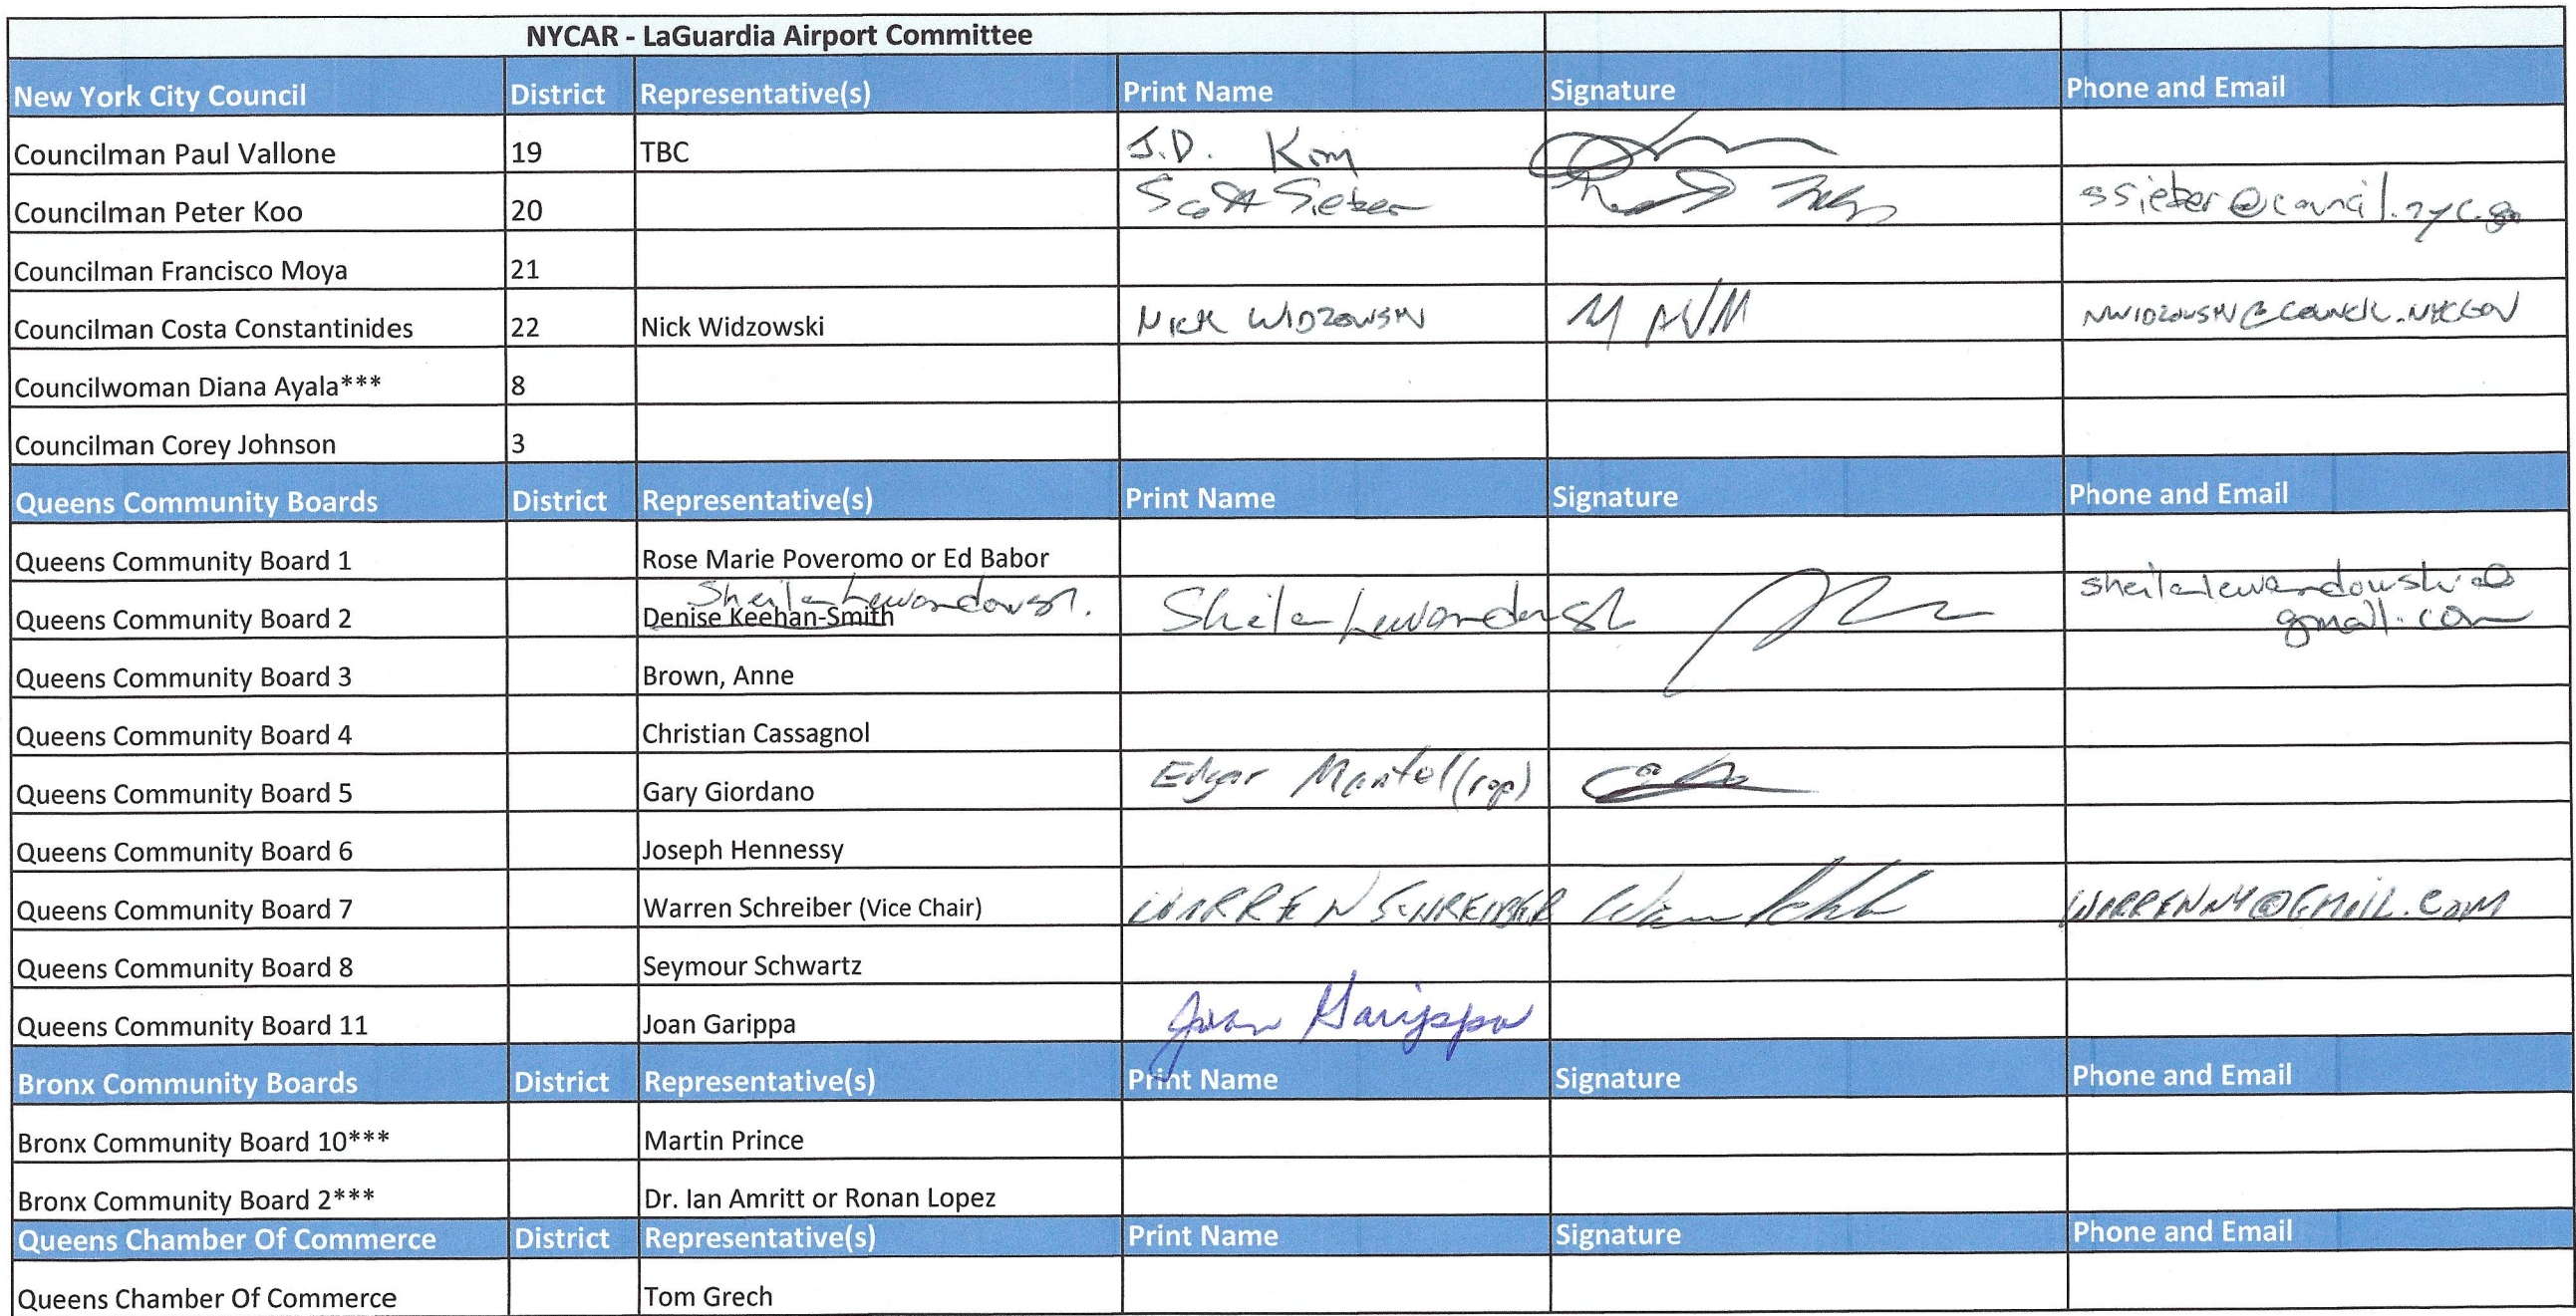 NYCAR - LaGuardia Airport Committee
New York City Council District Representative(s) Print Name Signature Phone and Email
Councilman Paul Vallone 19 TBC J.D. Kim
Councilman Peter Koo 20 Scott Sieber ssieber@council.nyc.go
Councilman Francisco Moya 21
Councilman Costa Constantinides 22 Nick Widzowski NICK WIDZOWSKI NWIDZOWSKI@COUNCIL.NYC.GOV
Councilwoman Diana Ayala*** 8
Councilman Corey Johnson 3
Queens Community Boards District Representative(s) Print Name Signature Phone and Email
Queens Community Board 1 Rose Marie Poveromo or Ed Babor
Sheila Lewandowski. sheilalewandowski@
Queens Community Board 2 Denise Keehan-Smith Sheila Lewandowski gmail.com
Queens Community Board 3 Brown, Anne
Queens Community Board 4 Christian Cassagnol
Queens Community Board 5 Gary Giordano Edgar Mantel (rep)
Queens Community Board 6 Joseph Hennessy
Queens Community Board 7 Warren Schreiber (Vice Chair) WARREN SCHREIBER WARRENNY@GMAIL.COM
Queens Community Board 8 Seymour Schwartz
Queens Community Board 11 Joan Garippa Joan Garippa
Bronx Community Boards District Representative(s) Print Name Signature Phone and Email
Bronx Community Board 10*** Martin Prince
Bronx Community Board 2*** Dr. Ian Amritt or Ronan Lopez
Queens Chamber Of Commerce District Representative(s) Print Name Signature Phone and Email
Queens Chamber Of Commerce Tom Grech